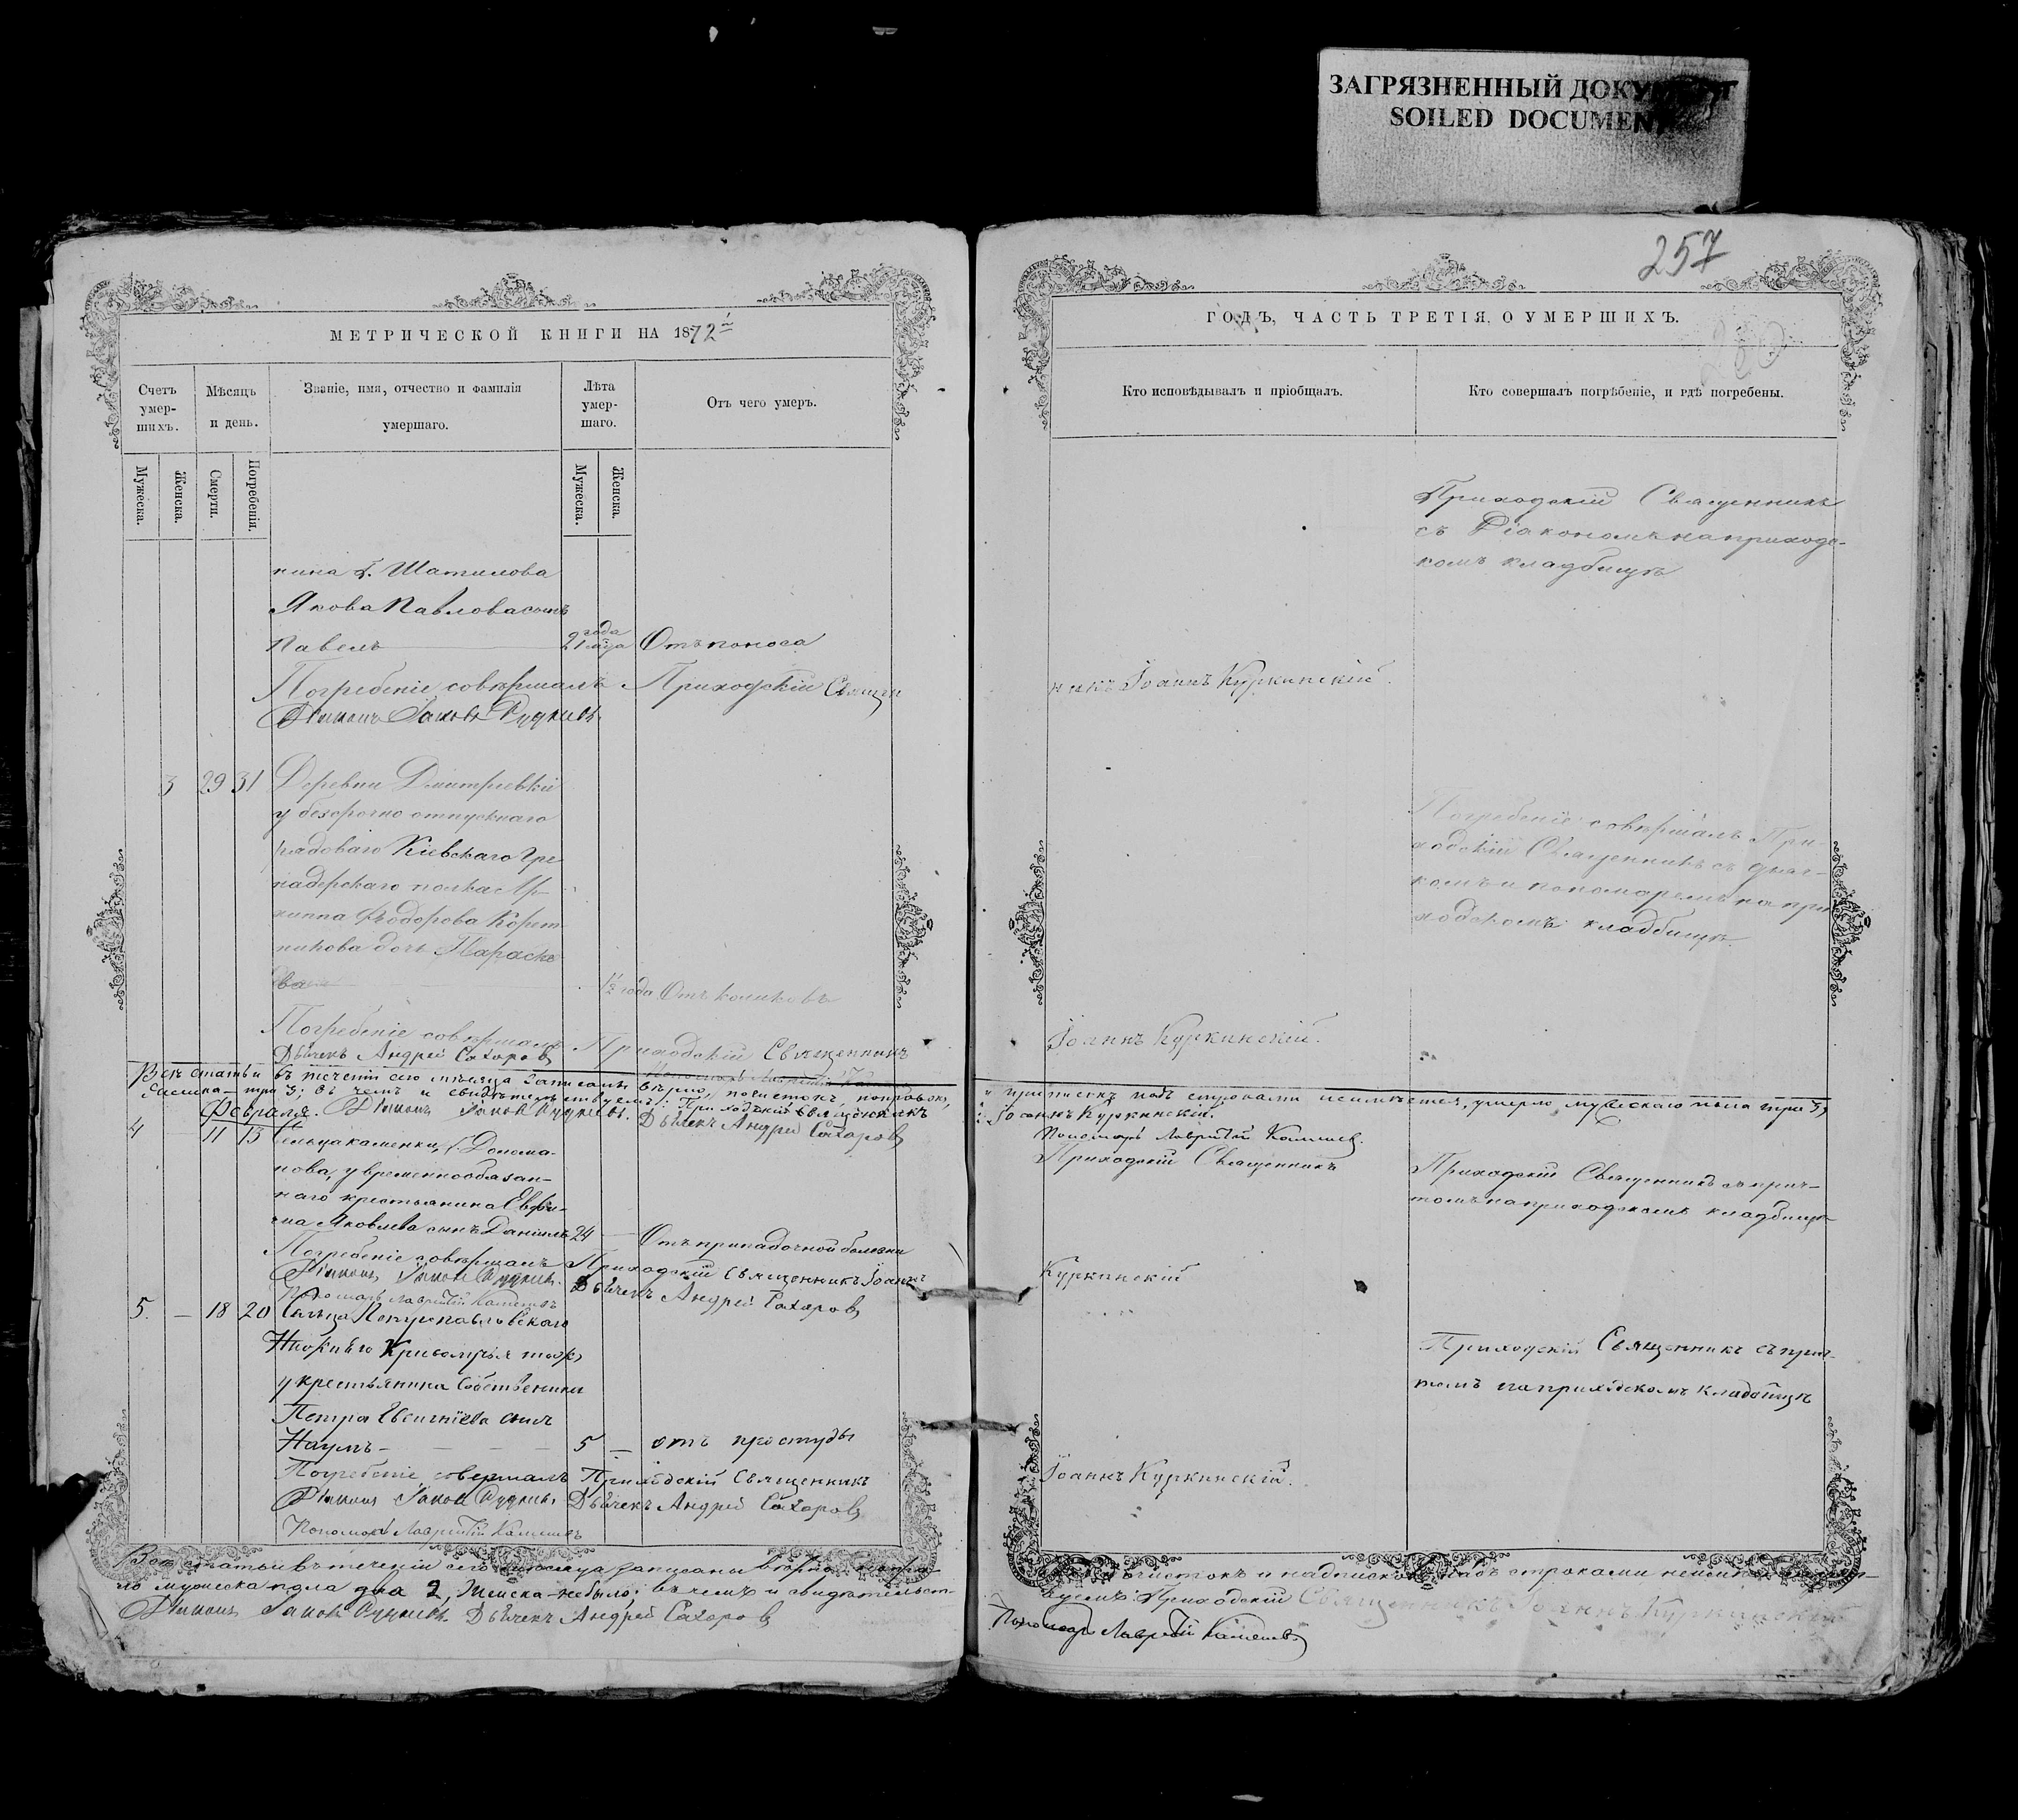 ЗАГРЯЗНЕННЫЙ ДОКУМЕНТ
SOILED DOCUMENT
257
МЕТРИЧЕСКОЙ КНИГИ НА 1872й
Счетъ умер-шихъ.
Мѣсяцъ и день.
Званіе, имя, отчество и фамилія умершаго.
Лѣта умер-шаго.
Отъ чего умеръ.
Мужеска.
Женска.
Смерти.
Погребенія.
Мужеска.
Женска.
нина Г. Шатилова
Якова Павлова сынъ
Павелъ 2 года Отъ поноса
Погребеніе совершалъ Приходскій Священ
Діаконъ Іаковъ Рудневъ
3 29 31 Деревни Дмитріевки
у безсрочно отпускнаго
рядоваго Кіевскаго Гре
надерскаго полка Ар-
хиппа Ѳеодорова Корет
никова дочь Параске
ва 1½ года Отъ коликовъ
Погребеніе совершалъ Приходскій Священникъ
Дьячекъ Андрей Сахаровъ
Всѣ статьи въ теченіи сего мѣсяца записаны вѣрно, почистокъ, поправокъ,
женска три 3; въ чемъ и свидѣтельствуемъ: Приходскій Священникъ
Февраля. Діаконъ Іаковъ Рудневъ. Дьячекъ Андрей Сахаровъ
4 11 13 Сельца Каменки, Г. Домома-
нова, у временнообязан-
наго крестьянина Евфи-
ма Яковлева сынъ Даніилъ 24 — Отъ припадочной болезни
Погребеніе совершалъ Приходскій Священникъ Іоаннъ
Діаконъ Іаковъ Рудневъ. Дьячекъ Андрей Сахаровъ
Пономарь Лаврентій
5. — 18 20 Сельца Петропавловскаго
Нижнѣго Кривомрья тожъ
у крестьянина Собственника
Петра Евгеніева сынъ
Наумъ — 5 — отъ простуды
Погребеніе совершалъ Приходскій Священникъ
Діаконъ Іаковъ Рудневъ. Дьячекъ Андрей Сахаровъ
Пономарь Лаврентій
Всѣ статьи въ теченіи сего мѣсяца записаны вѣрно
ло мужеска пола два 2, женска небыло; въ чемъ и свидѣтельст-
Діаконъ Іаковъ Рудневъ. Дьячекъ Андрей Сахаровъ
ГОДЪ, ЧАСТЬ ТРЕТІЯ, О УМЕРШИХЪ.
Кто исповѣдывалъ и пріобщалъ.
Кто совершалъ погрѣбеніе, и гдѣ погребены.
Приходскій Священникъ
съ Діакономъ на приходс-
комъ кладбищѣ
никъ Іоаннъ Куркинскій.
Погребеніе совершалъ При-
ходскій Священникъ съ дьяч-
комъ и пономаремъ на при
ходскомъ кладбищѣ
Іоаннъ Куркинскій.
и приписокъ надъ строками неимѣется, умерло мужескаго пола три 3,
Іоаннъ Куркинскій.
Пономарь Лаврентій
Приходскій Священникъ
Приходскій Священникъ съ прич-
томъ на приходскомъ кладбищѣ
Куркинскій
Приходскій Священникъ съ прич-
томъ на приходскомъ кладбищѣ
Іоаннъ Куркинскій.
чистокъ и надписокъ надъ строками неимѣется
вуемъ: Приходскій Священникъ Іоаннъ Куркинскій
Пономарь Лаврентій